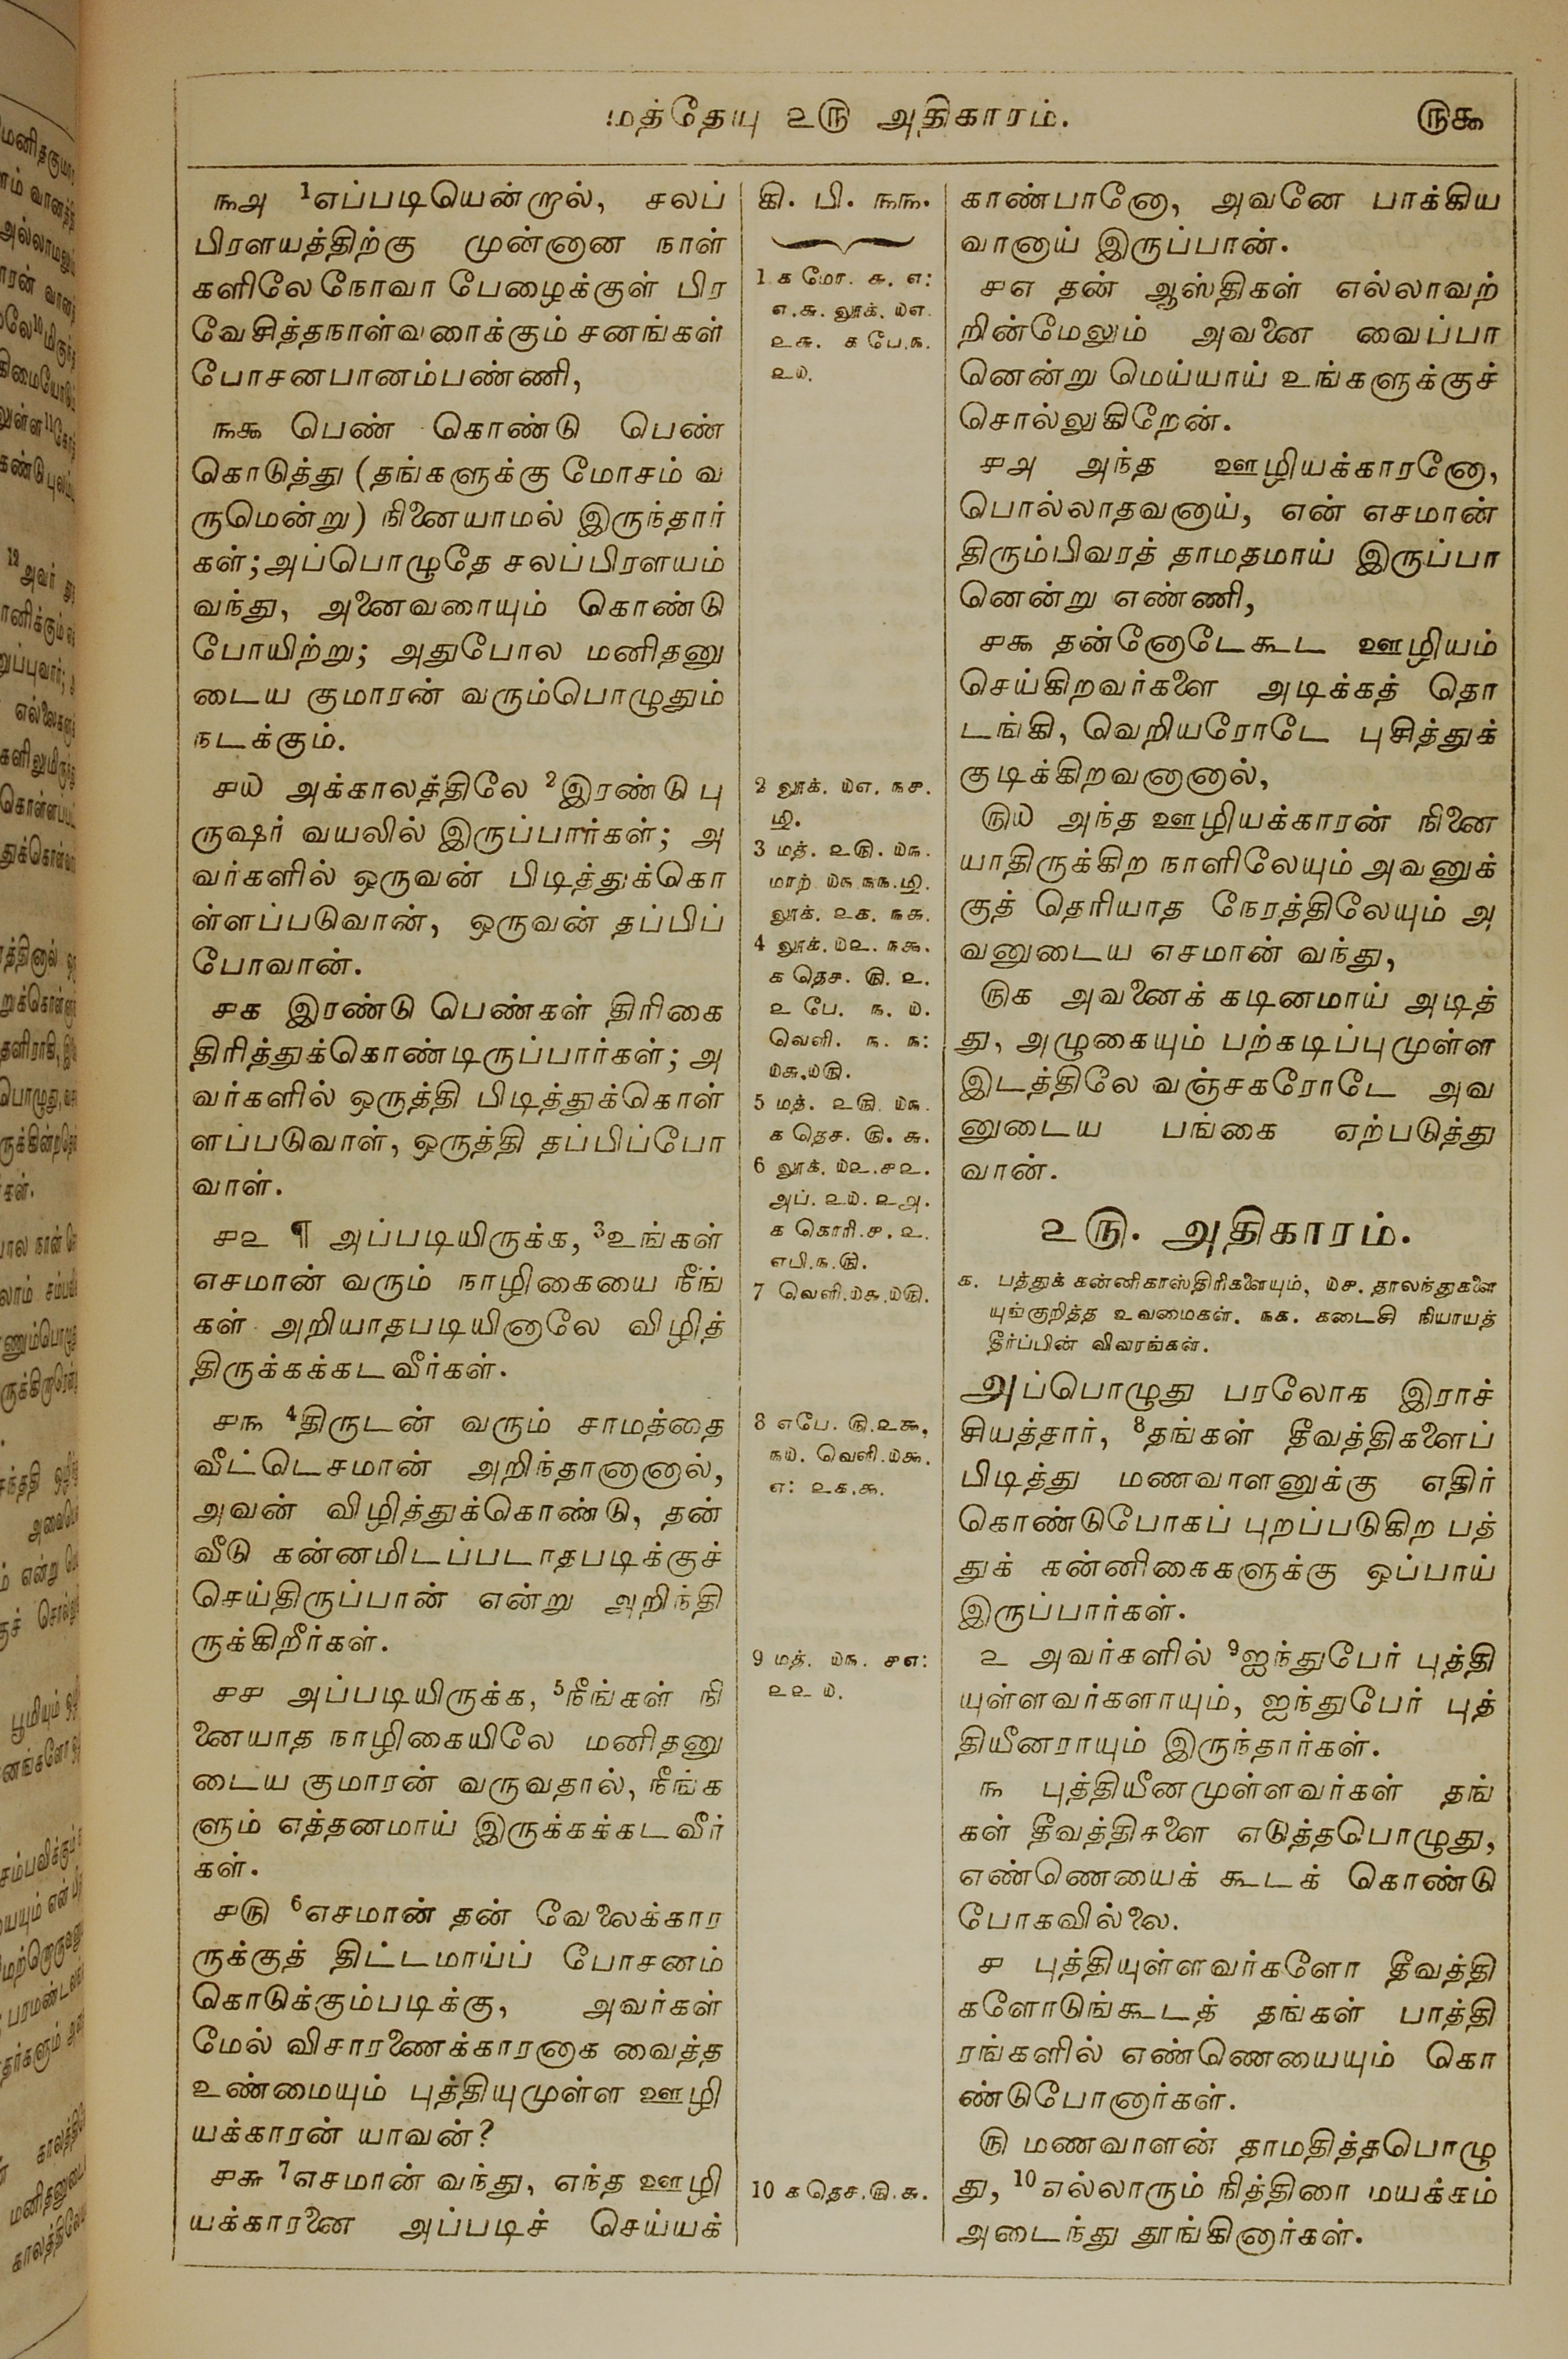 மத்தேயு ௨௫ அதிகாரம்.
௫௯
௩௮ 1எப்படியென்றால், சலப்
பிரளயத்திற்கு முன்னான நாள்
களிலே நோவா பேழைக்குள் பிர
வேசித்தநாள்வரைக்கும் சனங்கள்
போசனபானம்பண்ணி,
௩௯ பெண் கொண்டு பெண்
கொடுத்து (தங்களுக்கு மோசம் வ
ருமென்று) நினையாமல் இருந்தார்
கள்; அப்பொழுதே சலப்பிரளயம்
வந்து, அனைவரையும் கொண்டு
போயிற்று; அதுபோல மனிதனு
டைய குமாரன் வரும்பொழுதும்
நடக்கும்.
௪௰ அக்காலத்திலே 2இரண்டு பு
ருஷர் வயலில் இருப்பார்கள்; அ
வர்களில் ஒருவன் பிடித்துக்கொ
ள்ளப்படுவான், ஒருவன் தப்பிப்
போவான்.
௪௧ இரண்டு பெண்கள் திரிகை
திரித்துக்கொண்டிருப்பார்கள்; அ
வர்களில் ஒருத்தி பிடித்துக்கொள்
ளப்படுவாள், ஒருத்தி தப்பிப்போ
வாள்.
௪௨ ¶ அப்படியிருக்க, 3உங்கள்
எசமான் வரும் நாழிகையை நீங்
கள் அறியாதபடியினாலே விழித்
திருக்கக்கடவீர்கள்.
௪௩ 4திருடன் வரும் சாமத்தை
வீட்டெசமான் அறிந்தானானால்,
அவன் விழித்துக்கொண்டு, தன்
வீடு கன்னமிடப்படாதபடிக்குச்
செய்திருப்பான் என்று அறிந்தி
ருக்கிறீர்கள்.
௪௪ அப்படியிருக்க, 5நீங்கள் நி
னையாத நாழிகையிலே மனிதனு
டைய குமாரன் வருவதால், நீங்க
ளும் எத்தனமாய் இருக்கக்கடவீர்
கள்.
௪௫ 6எசமான் தன் வேலைக்கார
ருக்குத் திட்டமாய்ப் போசனம்
கொடுக்கும்படிக்கு, அவர்கள்
மேல் விசாரணைக்காரனாக வைத்த
உண்மையும் புத்தியுமுள்ள ஊழி
யக்காரன் யாவன்?
௪௬ 7எசமான் வந்து, எந்த ஊழி
யக்காரனை அப்படிச் செய்யக்
கி. பி. ௩௩.
1 ௧ மோ. ௬. ௭:
௭.௬. லூக். ௰௭.
௨௬. ௧ பே.௩.
௨௰.
2 லூக். ௰௭. ௩௪.
௴.
3 மத். ௨௫. ௰௩.
மாற் ௰௩ ௩௩.௴.
லூக். ௨௧. ௩௬.
4 லூக். ௰௨. ௩௯.
௧ தெச. ௫. ௨.
௨ பே. ௩. ௰.
வெளி. ௩. ௩:
௰௬.௰௫.
5 மத். ௨௫. ௰௩.
௧ தெச. ௫. ௬.
6 லூக். ௰௨.௪௨.
அப். ௨௰. ௨௮.
௧ கொரி.௪.௨.
எபி.௩.௫.
7 வெளி.௰௬.௰௫.
8 எபே. ௫.௨௯,
௩௰. வெளி.௰௯.
௭: ௨௧.௯.
9 மத். ௰௩. ௪௭:
௨௨ ௰.
10 ௧ தெச.௫.௬.
காண்பானோ, அவனே பாக்கிய
வானாய் இருப்பான்.
௪௭ தன் ஆஸ்திகள் எல்லாவற்
றின்மேலும் அவனை வைப்பா
னென்று மெய்யாய் உங்களுக்குச்
சொல்லுகிறேன்.
௪௮ அந்த ஊழியக்காரனோ,
பொல்லாதவனாய், என் எசமான்
திரும்பிவரத் தாமதமாய் இருப்பா
னென்று எண்ணி,
௪௯ தன்னோடேகூட ஊழியம்
செய்கிறவர்களை அடிக்கத் தொ
டங்கி, வெறியரோடே புசித்துக்
குடிக்கிறவனானால்,
௫௰ அந்த ஊழியக்காரன் நினை
யாதிருக்கிற நாளிலேயும் அவனுக்
குத் தெரியாத நேரத்திலேயும் அ
வனுடைய எசமான் வந்து,
௫௧ அவனைக் கடினமாய் அடித்
து, அழுகையும் பற்கடிப்புமுள்ள
இடத்திலே வஞ்சகரோடே அவ
னுடைய பங்கை ஏற்படுத்து
வான்.
௨௫. அதிகாரம்.
௧. பத்துக் கன்னிகாஸ்திரிகளையும், ௰௪. தாலந்துகளை
யுங்குறித்த உவமைகள். ௩௧. கடைசி நியாயத்
தீர்ப்பின் விவரங்கள்.
அப்பொழுது பரலோக இராச்
சியத்தார், 8தங்கள் தீவத்திகளைப்
பிடித்து மணவாளனுக்கு எதிர்
கொண்டுபோகப் புறப்படுகிற பத்
துக் கன்னிகைகளுக்கு ஒப்பாய்
இருப்பார்கள்.
௨ அவர்களில் 9ஐந்துபேர் புத்தி
யுள்ளவர்களாயும், ஐந்துபேர் புத்
தியீனராயும் இருந்தார்கள்.
௩ புத்தியீனமுள்ளவர்கள் தங்
கள் தீவத்திகளை எடுத்தபொழுது,
எண்ணெயைக் கூடக் கொண்டு
போகவில்லை.
௪ புத்தியுள்ளவர்களோ தீவத்தி
களோடுங்கூடத் தங்கள் பாத்தி
ரங்களில் எண்ணெயையும் கொ
ண்டுபோனார்கள்.
௫ மணவாளன் தாமதித்தபொழு
து, 10எல்லாரும் நித்திரை மயக்கம்
அடைந்து தூங்கினார்கள்.